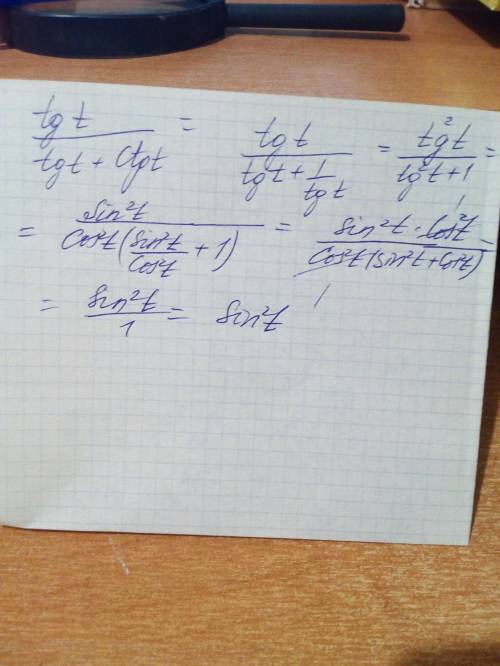 tg t / (tg t + Ctg t) = tg t / (tg t + 1/tg t) = tg²t / (tg²t + 1) =
= Sin²t / (Cos²t (Sin²t/Cos²t + 1)) = Sin²t · Cos²t / (Cos²t (Sin²t + Cos²t)) =
= Sin²t / 1 = Sin²t